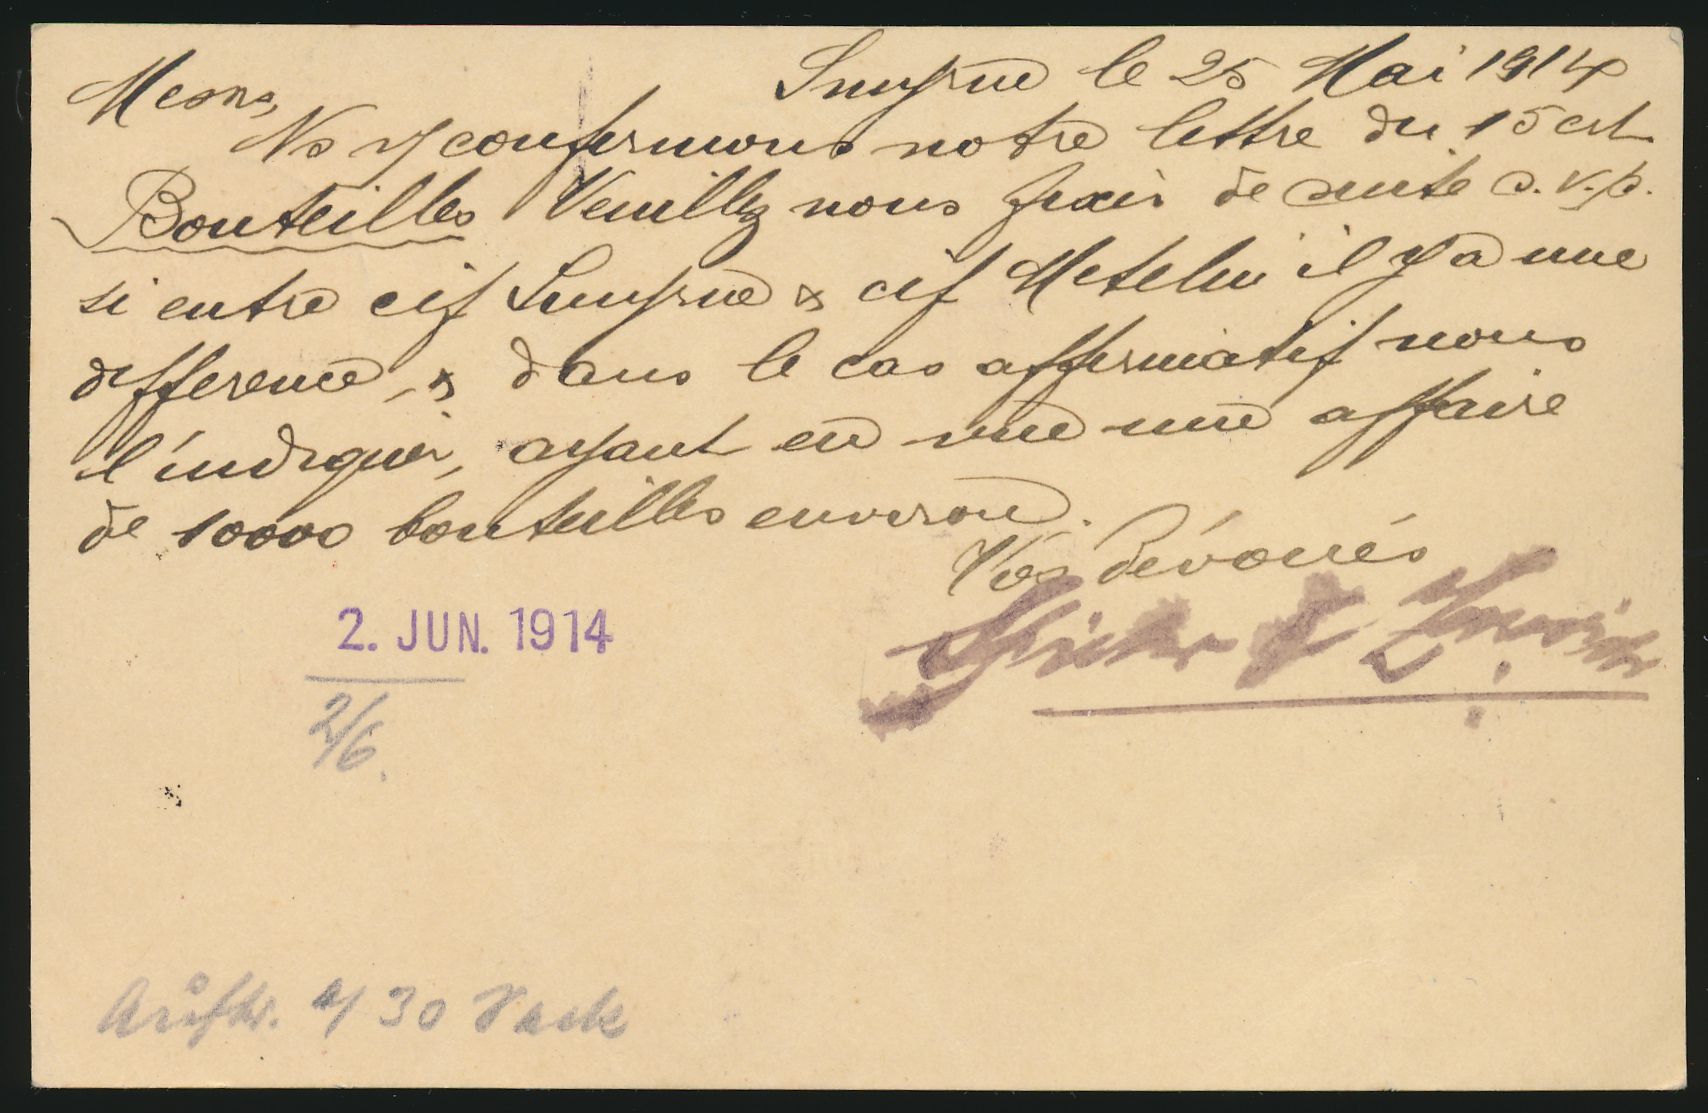 Smyrne le 25 Mai 1914
Messrs,
Ns confirmons notre lettre du 15 crt
Bouteilles Veuillez nous de suite s.v.p.
si entre cif Smyrne & cif Metelin il y a une
difference, & dans le cas affirmatif nous
l'indiquer, ayant en vue une affaire
de 10000 bouteilles environ.
Vos dévoués
&
2. JUN. 1914
2/6.
Auftr. 30